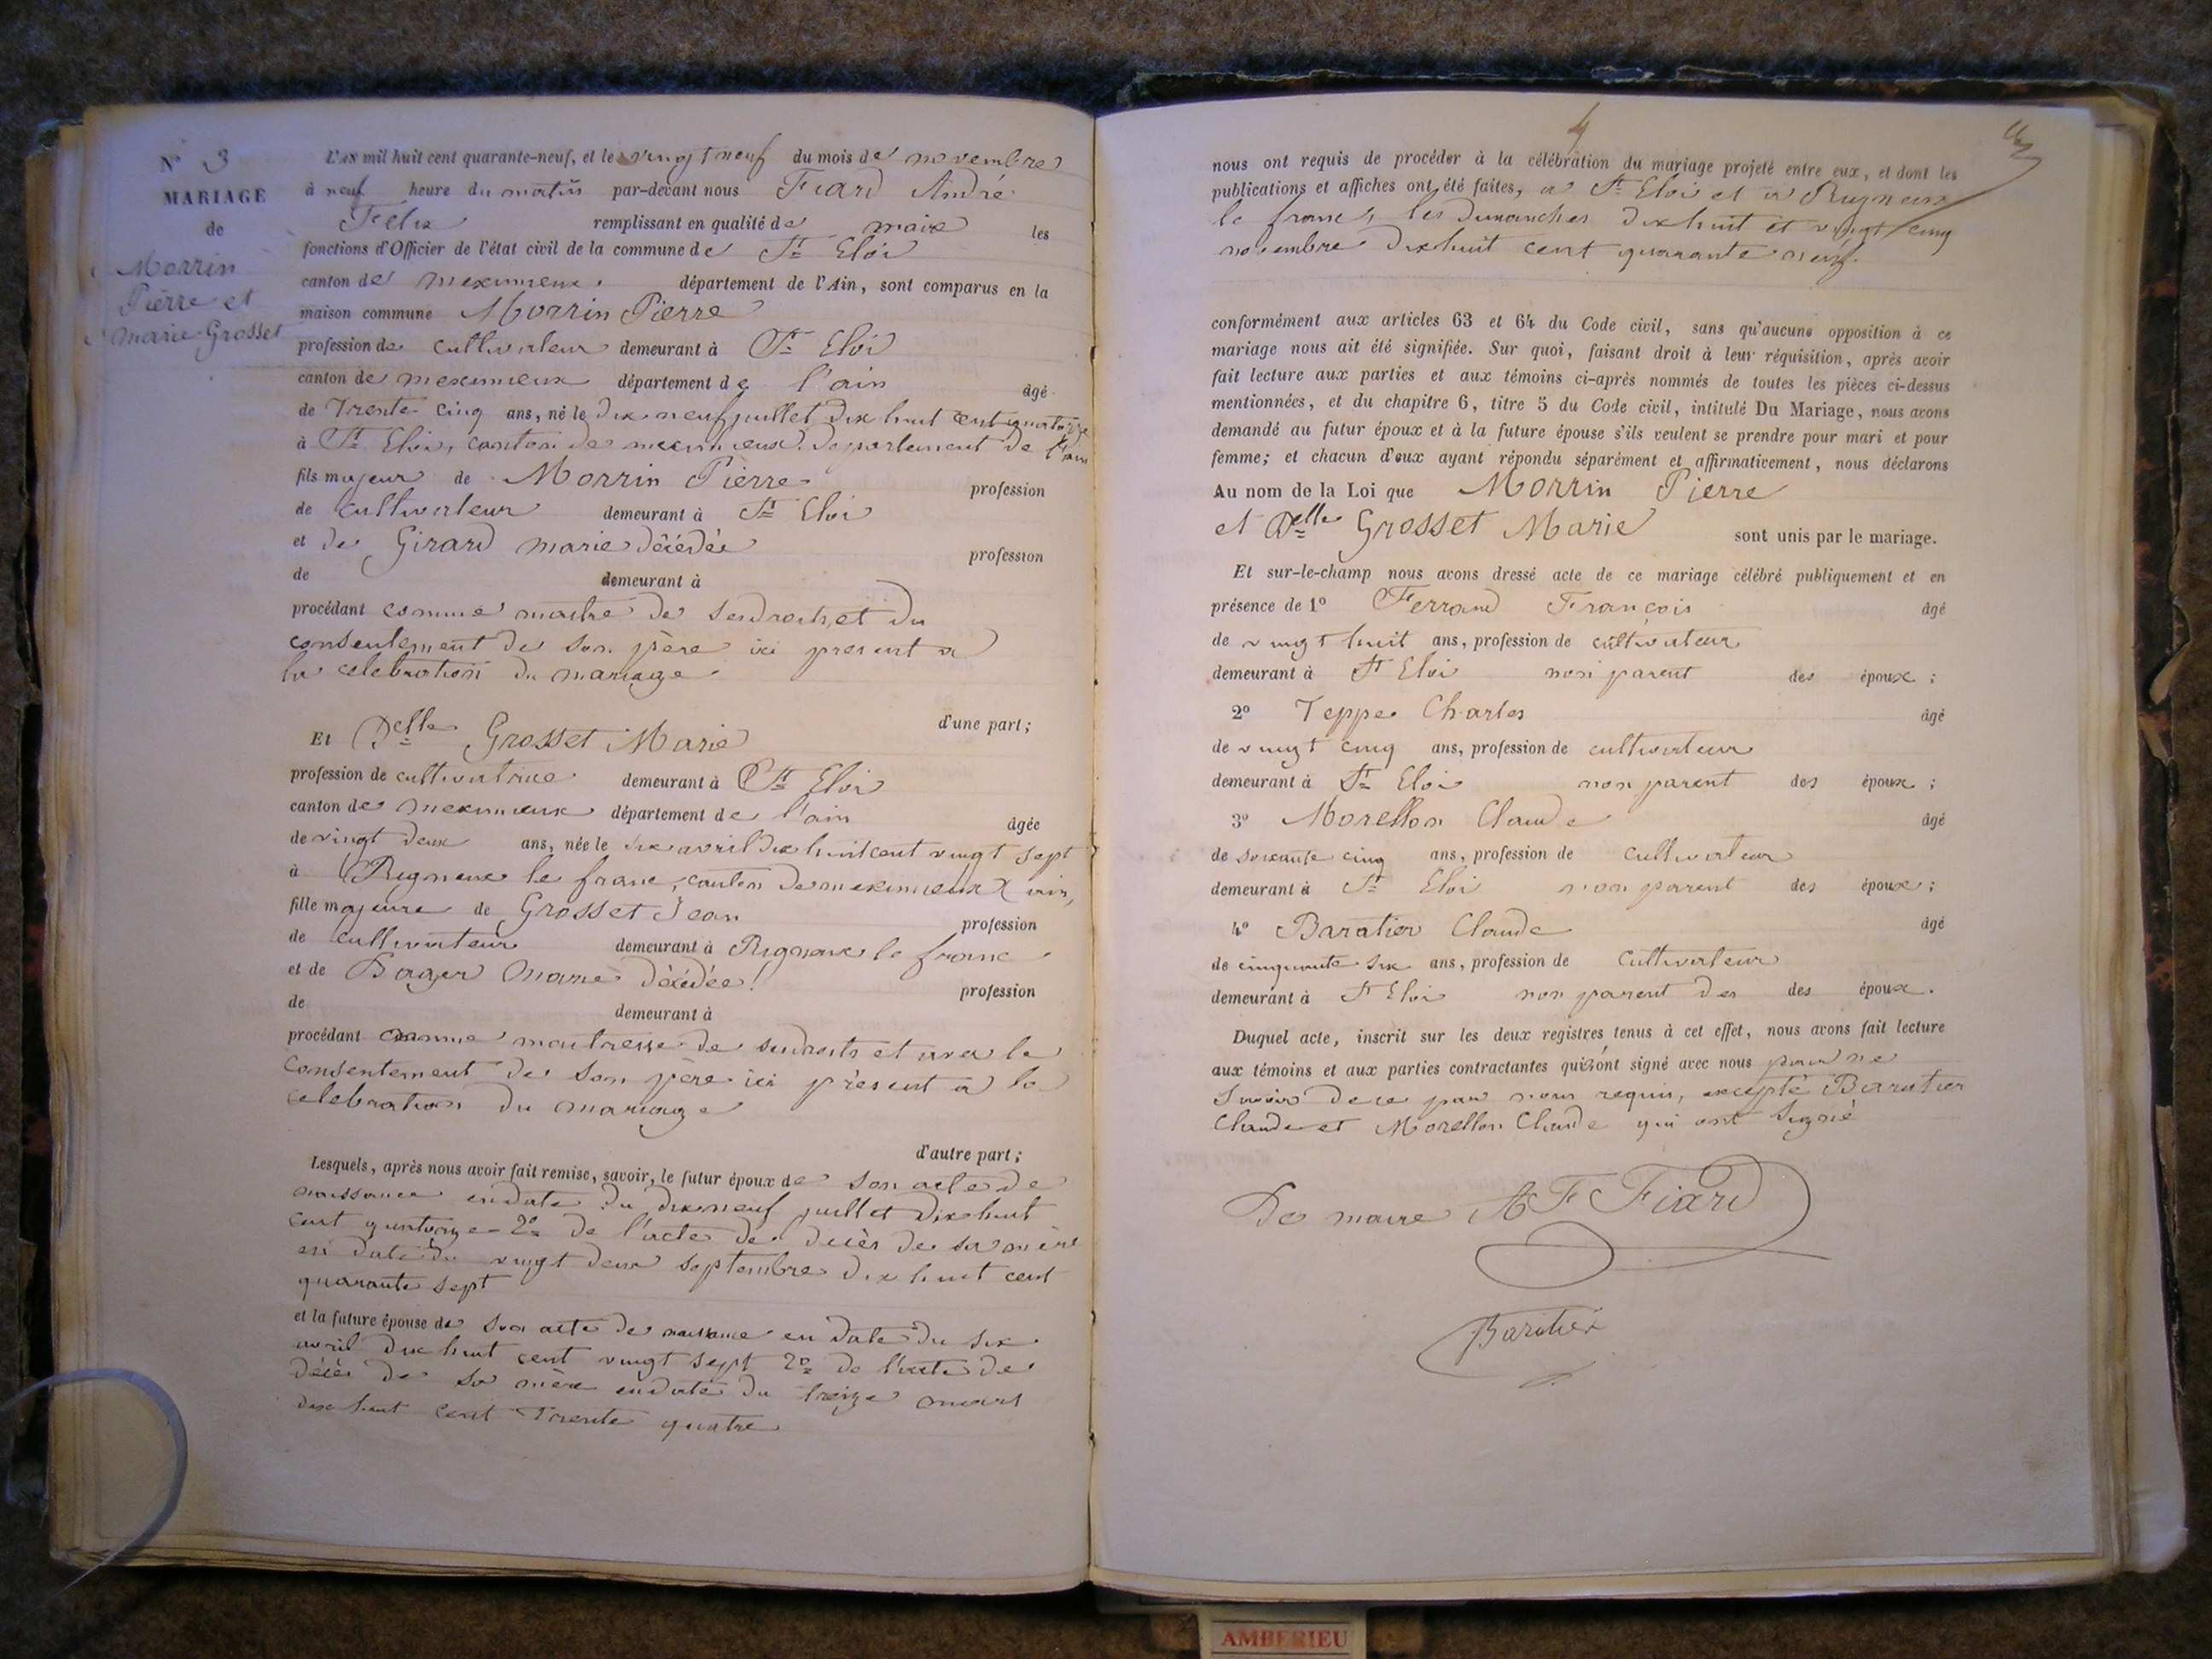 N° 3
MARIAGE
de
Morrin
Pierre et
Marie Grosset
L'AN mil huit cent quarante-neuf, et le vingt neuf du mois de novembre
à neuf heure du matin par-devant nous Fiard André
Félix remplissant en qualité de maire les
fonctions d'Officier de l'état civil de la commune de St Eloi
canton de meximieux département de l'Ain, sont comparus en la
maison commune Morrin Pierre
profession de cultivateur demeurant à St Eloi
canton de meximieux département de l'ain âgé
de Trente cinq ans, né le dix neuf juillet dix huit cent quatorze
à St Eloi, canton de meximieux, département de l'ain
fils majeur de Morrin Pierre profession
de cultivateur demeurant à St Eloi
et de Girard marie décédée profession
de demeurant à
procédant comme maitre de ses droits, et du
consentement de son père ici present a
la celebration du mariage
d'une part;
Et Delle Grosset Marie
profession de cultivatrice demeurant à St Eloi
canton de meximieux département de l'ain âgée
de vingt deux ans, née le six avril dix huit cent vingt sept
à Rigneux le franc, canton de meximieux ain,
fille majeure de Grosset Jean profession
de cultivateur demeurant à Rigneux le franc
et de Marie décédée profession
de demeurant à
procédant comme maitresse de ses droits et avec le
consentement de son père ici présent a la
celebration du mariage
d'autre part;
Lesquels, après nous avoir fait remise, savoir, le futur époux de son acte de
naissance en date du dix neuf juillet dix huit
cent quatorze 2° de l'acte de décès de sa mère
en date du vingt deux septembre dix huit cent
quarante sept
et la future épouse de son acte de naissance en date du six
avril dix huit cent vingt sept 2° de l'acte de
décès de sa mère en date du treize mars
dix huit cent trente quatre
4
nous ont requis de procéder à la célébration du mariage projeté entre eux, et dont les
publications et affiches ont été faites, a St Eloi et a Rigneux
le franc, les dimanches dix huit et vingt cinq
novembre dix huit cent quarante neuf.
conformément aux articles 63 et 64 du Code civil, sans qu'aucune opposition à ce
mariage nous ait été signifiée. Sur quoi, faisant droit à leur réquisition, après avoir
fait lecture aux parties et aux témoins ci-après nommés de toutes les pièces ci-dessus
mentionnées, et du chapitre 6, titre 5 du Code civil, intitulé Du Mariage, nous avons
demandé au futur époux et à la future épouse s'ils veulent se prendre pour mari et pour
femme; et chacun d'eux ayant répondu séparément et affirmativement, nous déclarons
Au nom de la Loi que Morrin Pierre
et Delle Grosset Marie sont unis par le mariage.
Et sur-le-champ nous avons dressé acte de ce mariage célébré publiquement et en
présence de 1° Ferrand François âgé
de vingt huit ans, profession de cultivateur
demeurant à St Eloi non parent des époux;
2° Teppe Charles âgé
de vingt cinq ans, profession de cultivateur
demeurant à St Eloi non parent des époux;
3° Morellon Claude âgé
de soixante cinq ans, profession de cultivateur
demeurant à St Eloi non parent des époux;
4° Baratier Claude âgé
de cinquante six ans, profession de cultivateur
demeurant à St Eloi non parent des des époux.
Duquel acte, inscrit sur les deux registres tenus à cet effet, nous avons fait lecture
aux témoins et aux parties contractantes qui ont signé avec nous pour ne
savoir de ce par nous requis, excepté Baratier
Claude et Morellon Claude qui ont signé
Le maire A F Fiard
Baratier
AMBERIEU